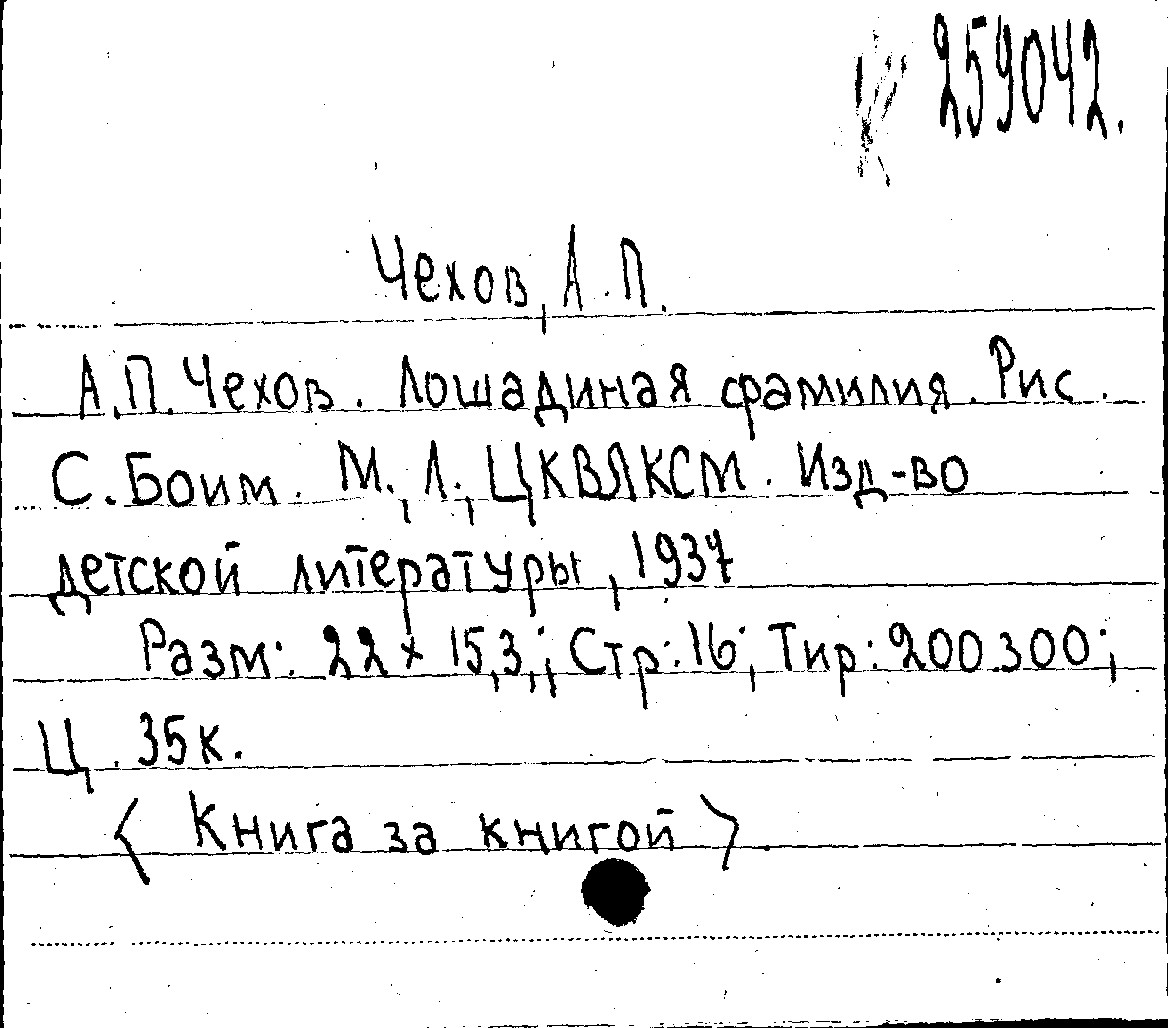 259042.
Чехов, А. П.
А.П. Чехов. Лошадиная фамилия. Рис.
С. Боим. М., Л., ЦКВЛКСМ. Изд-во
детской литературы, 1937
Разм: 22 x 15,3,; Стр:16; Тир: 200.300;
Ц. 35к.
< Книга за книгой >.